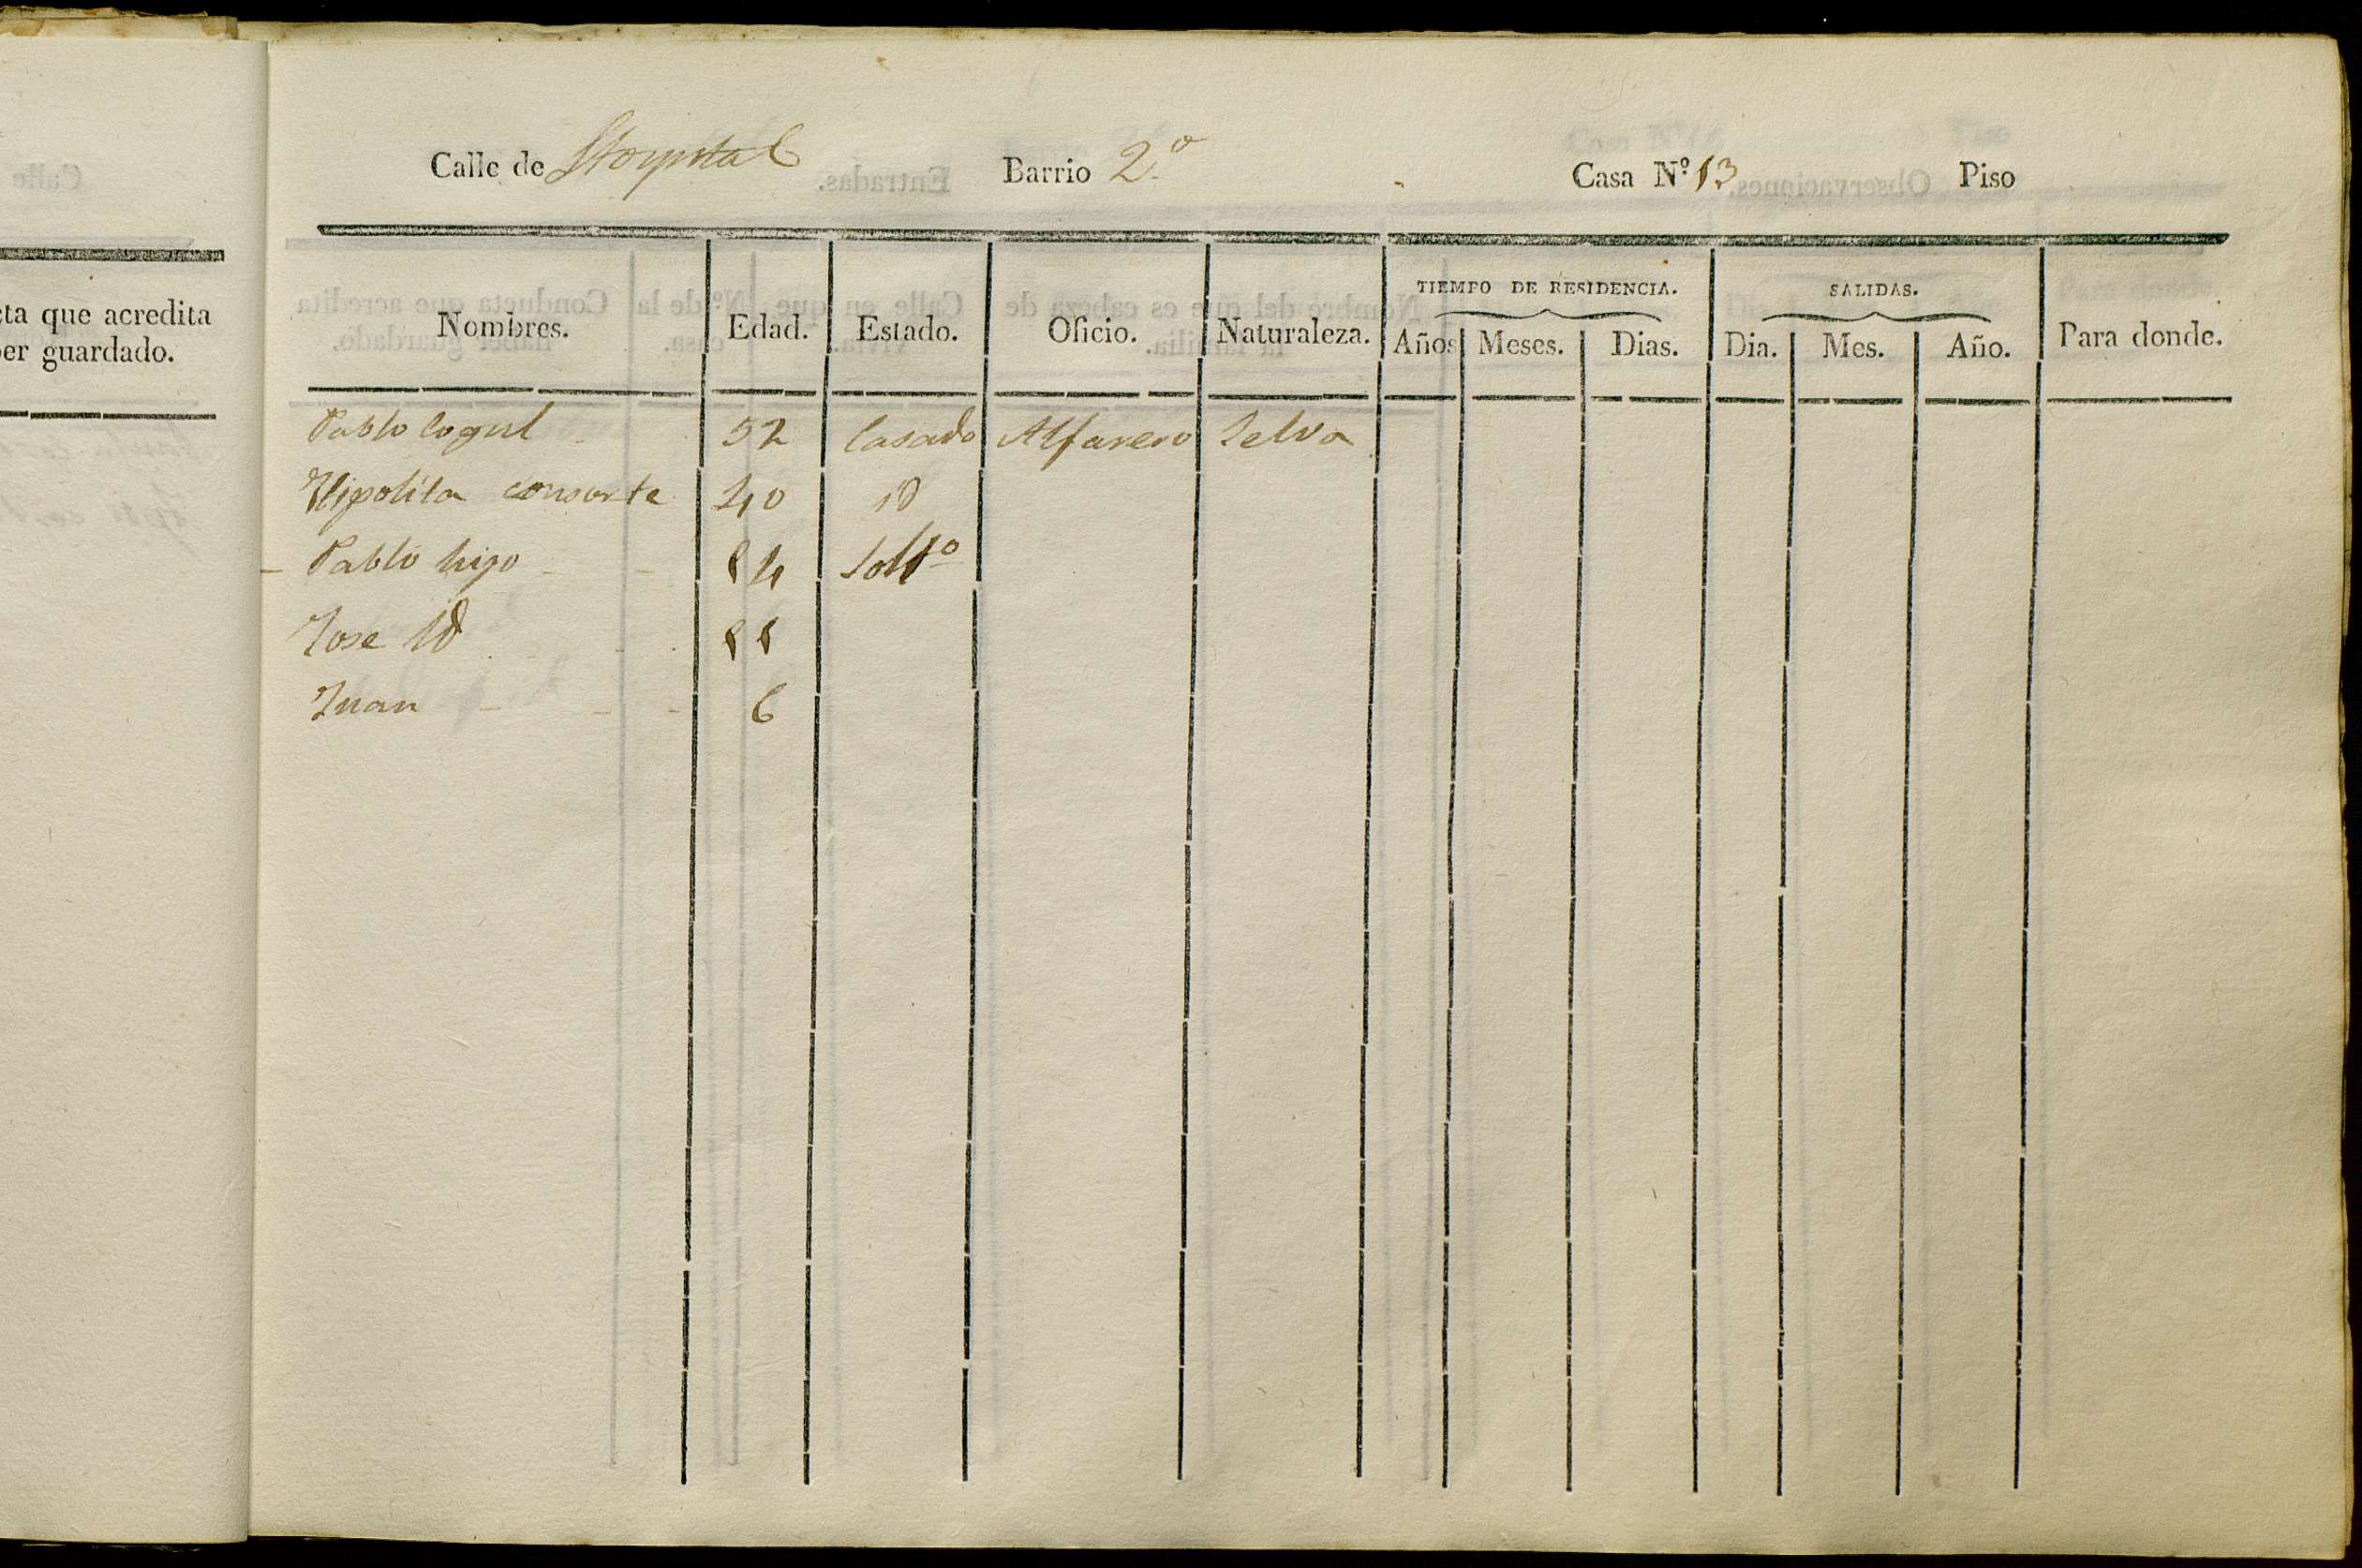 Calle de Hospital Barrio 2.º Casa Nº 13 Piso
cta que acredita
er guardado.
TIEMPO DE RESIDENCIA. SALIDAS.
Nombres. Edad. Estado. Oficio. Naturaleza. Años Meses. Dias. Dia. Mes. Año. Para donde.
Pablo Cogul 52 Casado Alfarero Selva
Hipolita consorte 40 id
Pablo hijo 14 Soltº
Jose id 11
Juan 6